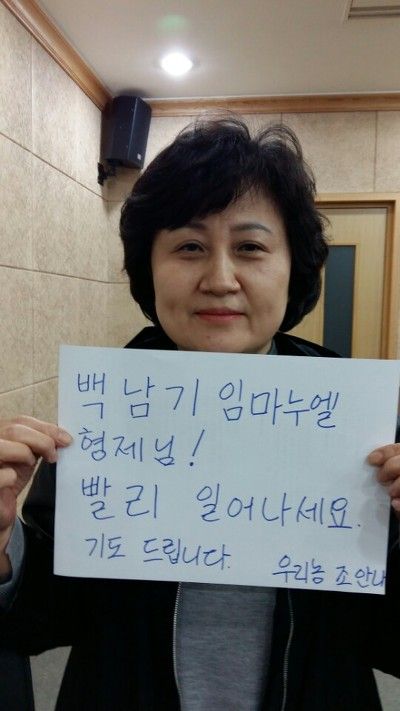 백남기 임마누엘
형제님!
빨리 일어나세요.
기도 드립니다.
우리농 조안나